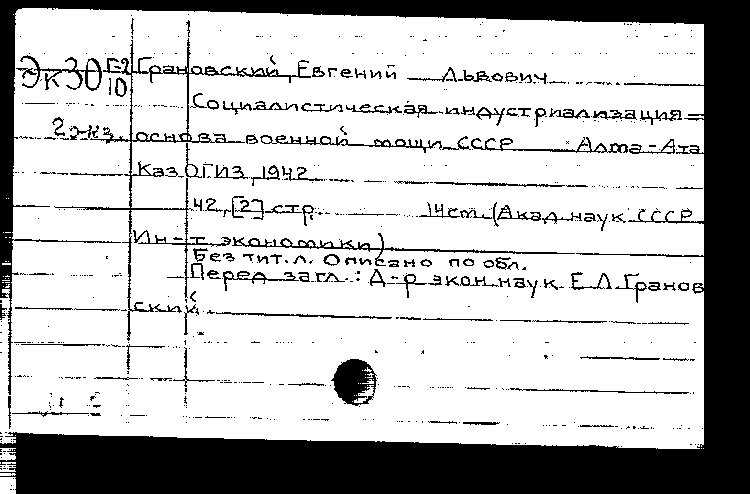 Эк30 Г-2 Грановский, Евгений Львович
10
Социалистическая индустриализация =
2 экз. основа военной мощи СССР Алма-Ата
КазОГИЗ, 1942
42, [2] стр. 14 cm. (Акад. наук СССР
Ин-т экономики)
Без тит. л. Описано по обл.
Перед загл.: Д-р экон. наук Е. Л. Гранов
ский.